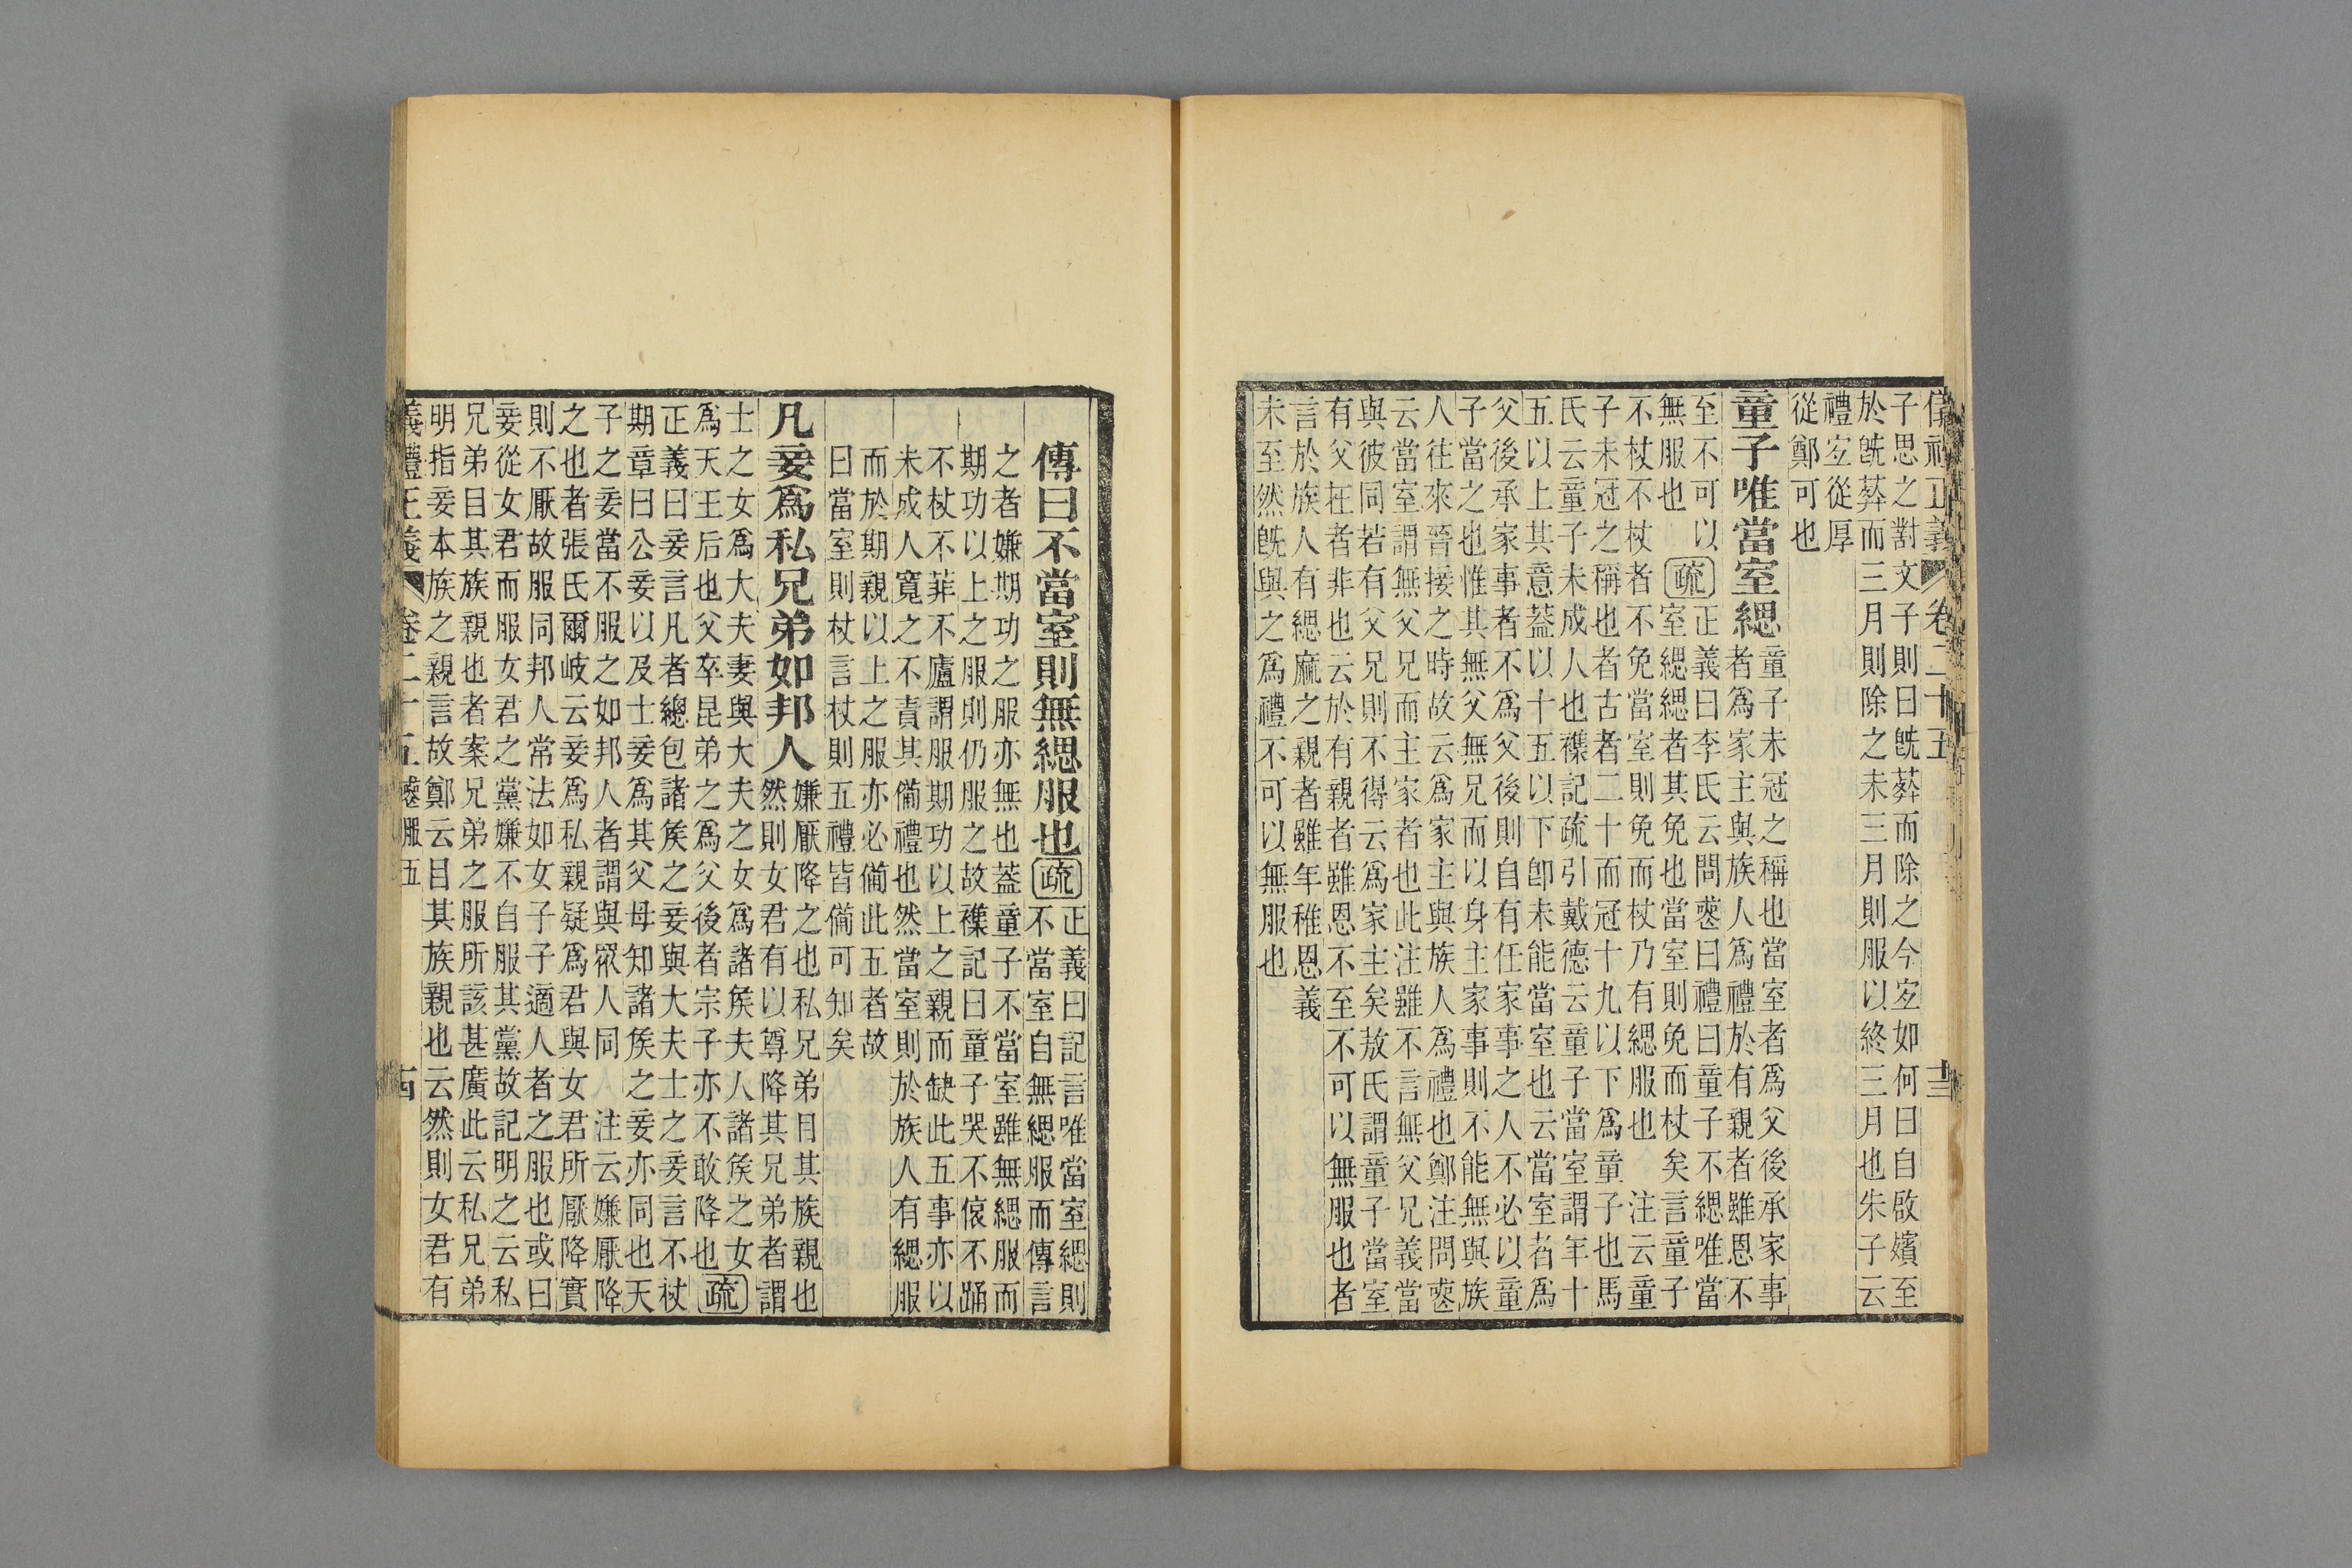 正義 卷二十五 十三
子思之對文子則曰旣葬而除之今宐如何曰自啟殯至
於旣葬而三月則除之未三月則服以終三月也朱子云
禮宐從厚
從鄭可也
童子唯當室緦
童子未冠之稱也當室者爲父後承家事
者爲家主與族人爲禮於有親者雖恩不
至不可以
無服也
疏
正義曰李氏云問喪曰禮曰童子不緦唯當
室緦緦者其免也當室則免而杖矣言童子
不杖不杖者不免當室則免而杖乃有緦服也 注云童
子未冠之稱也者古者二十而冠十九以下爲童子也馬
氏云童子未成人也襍記疏引戴德云童子當室謂年十
五以上其意葢以十五以下卽未能當室也云當室者爲
父後承家事者不爲父後則自有任家事之人不必以童
子當之也惟其無父無兄而以身主家事則不能無與族
人往來晉接之時故云爲家主與族人爲禮也鄭注問喪
云當室謂無父兄而主家者也此注雖不言無父兄義當
與彼同若有父兄則不得云爲家主矣敖氏謂童子當室
有父在者非也云於有親者雖恩不至不可以無服也者
言於族人有緦麻之親者雖年稚恩義
未至然旣與之爲禮不可以無服也
傳曰不當室則無緦服也疏
正義曰記言唯當室緦則
不當室自無緦服而傳言
之者嫌期功之服亦無也葢童子不當室雖無緦服而
期功以上之服則仍服之故襍記曰童子哭不偯不踊
不杖不菲不廬謂服期功以上之親而缺此五事亦以
未成人寬之不責其備禮也然當室則於族人有緦服
而於期親以上之服亦必備此五者故
曰當室則杖言杖則五禮皆備可知矣
凡妾爲私兄弟如邦人
嫌厭降之也私兄弟目其族親也
然則女君有以尊降其兄弟者謂
士之女爲大夫妻與大夫之女爲諸矦夫人諸矦之女
爲天王后也父卒昆弟之爲父後者宗子亦不敢降也疏
正義曰妾言凡者總包諸矦之妾與大夫士之妾言不杖
期章曰公妾以及士妾爲其父母知諸矦之妾亦同也天
子之妾當不服之如邦人者謂與衆人同 注云嫌厭降
之也者張氏爾岐云妾爲私親疑爲君與女君所厭降實
則不厭故服同邦人常法如女子子適人者之服也或曰
妾從女君而服女君之黨嫌不自服其黨故記明之云私
兄弟目其族親也者案兄弟之服所該甚廣此云私兄弟
明指妾本族之親言故鄭云目其族親也云然則女君有
義禮正義 卷二十五 喪服五 十四